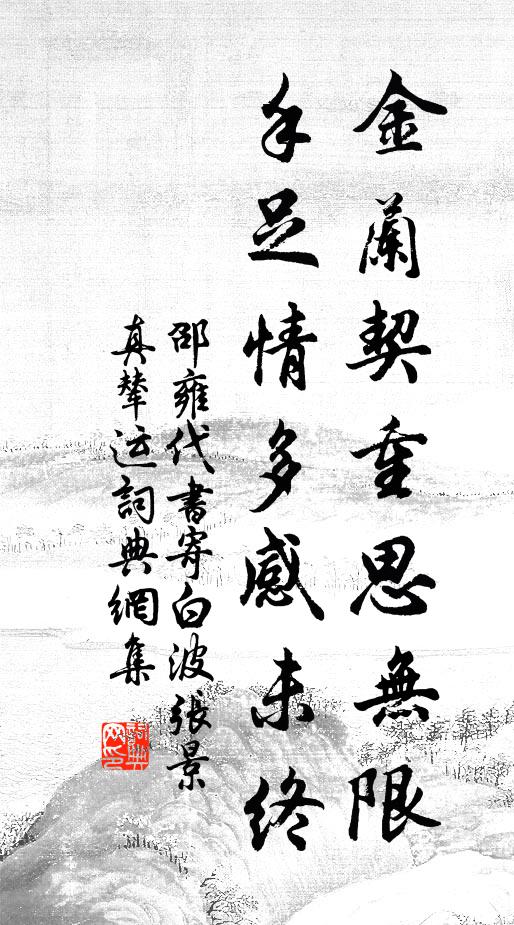 金蘭契重思無限
手足情多感未終
邵雍代書寄白波張景
真輦运詞典網集